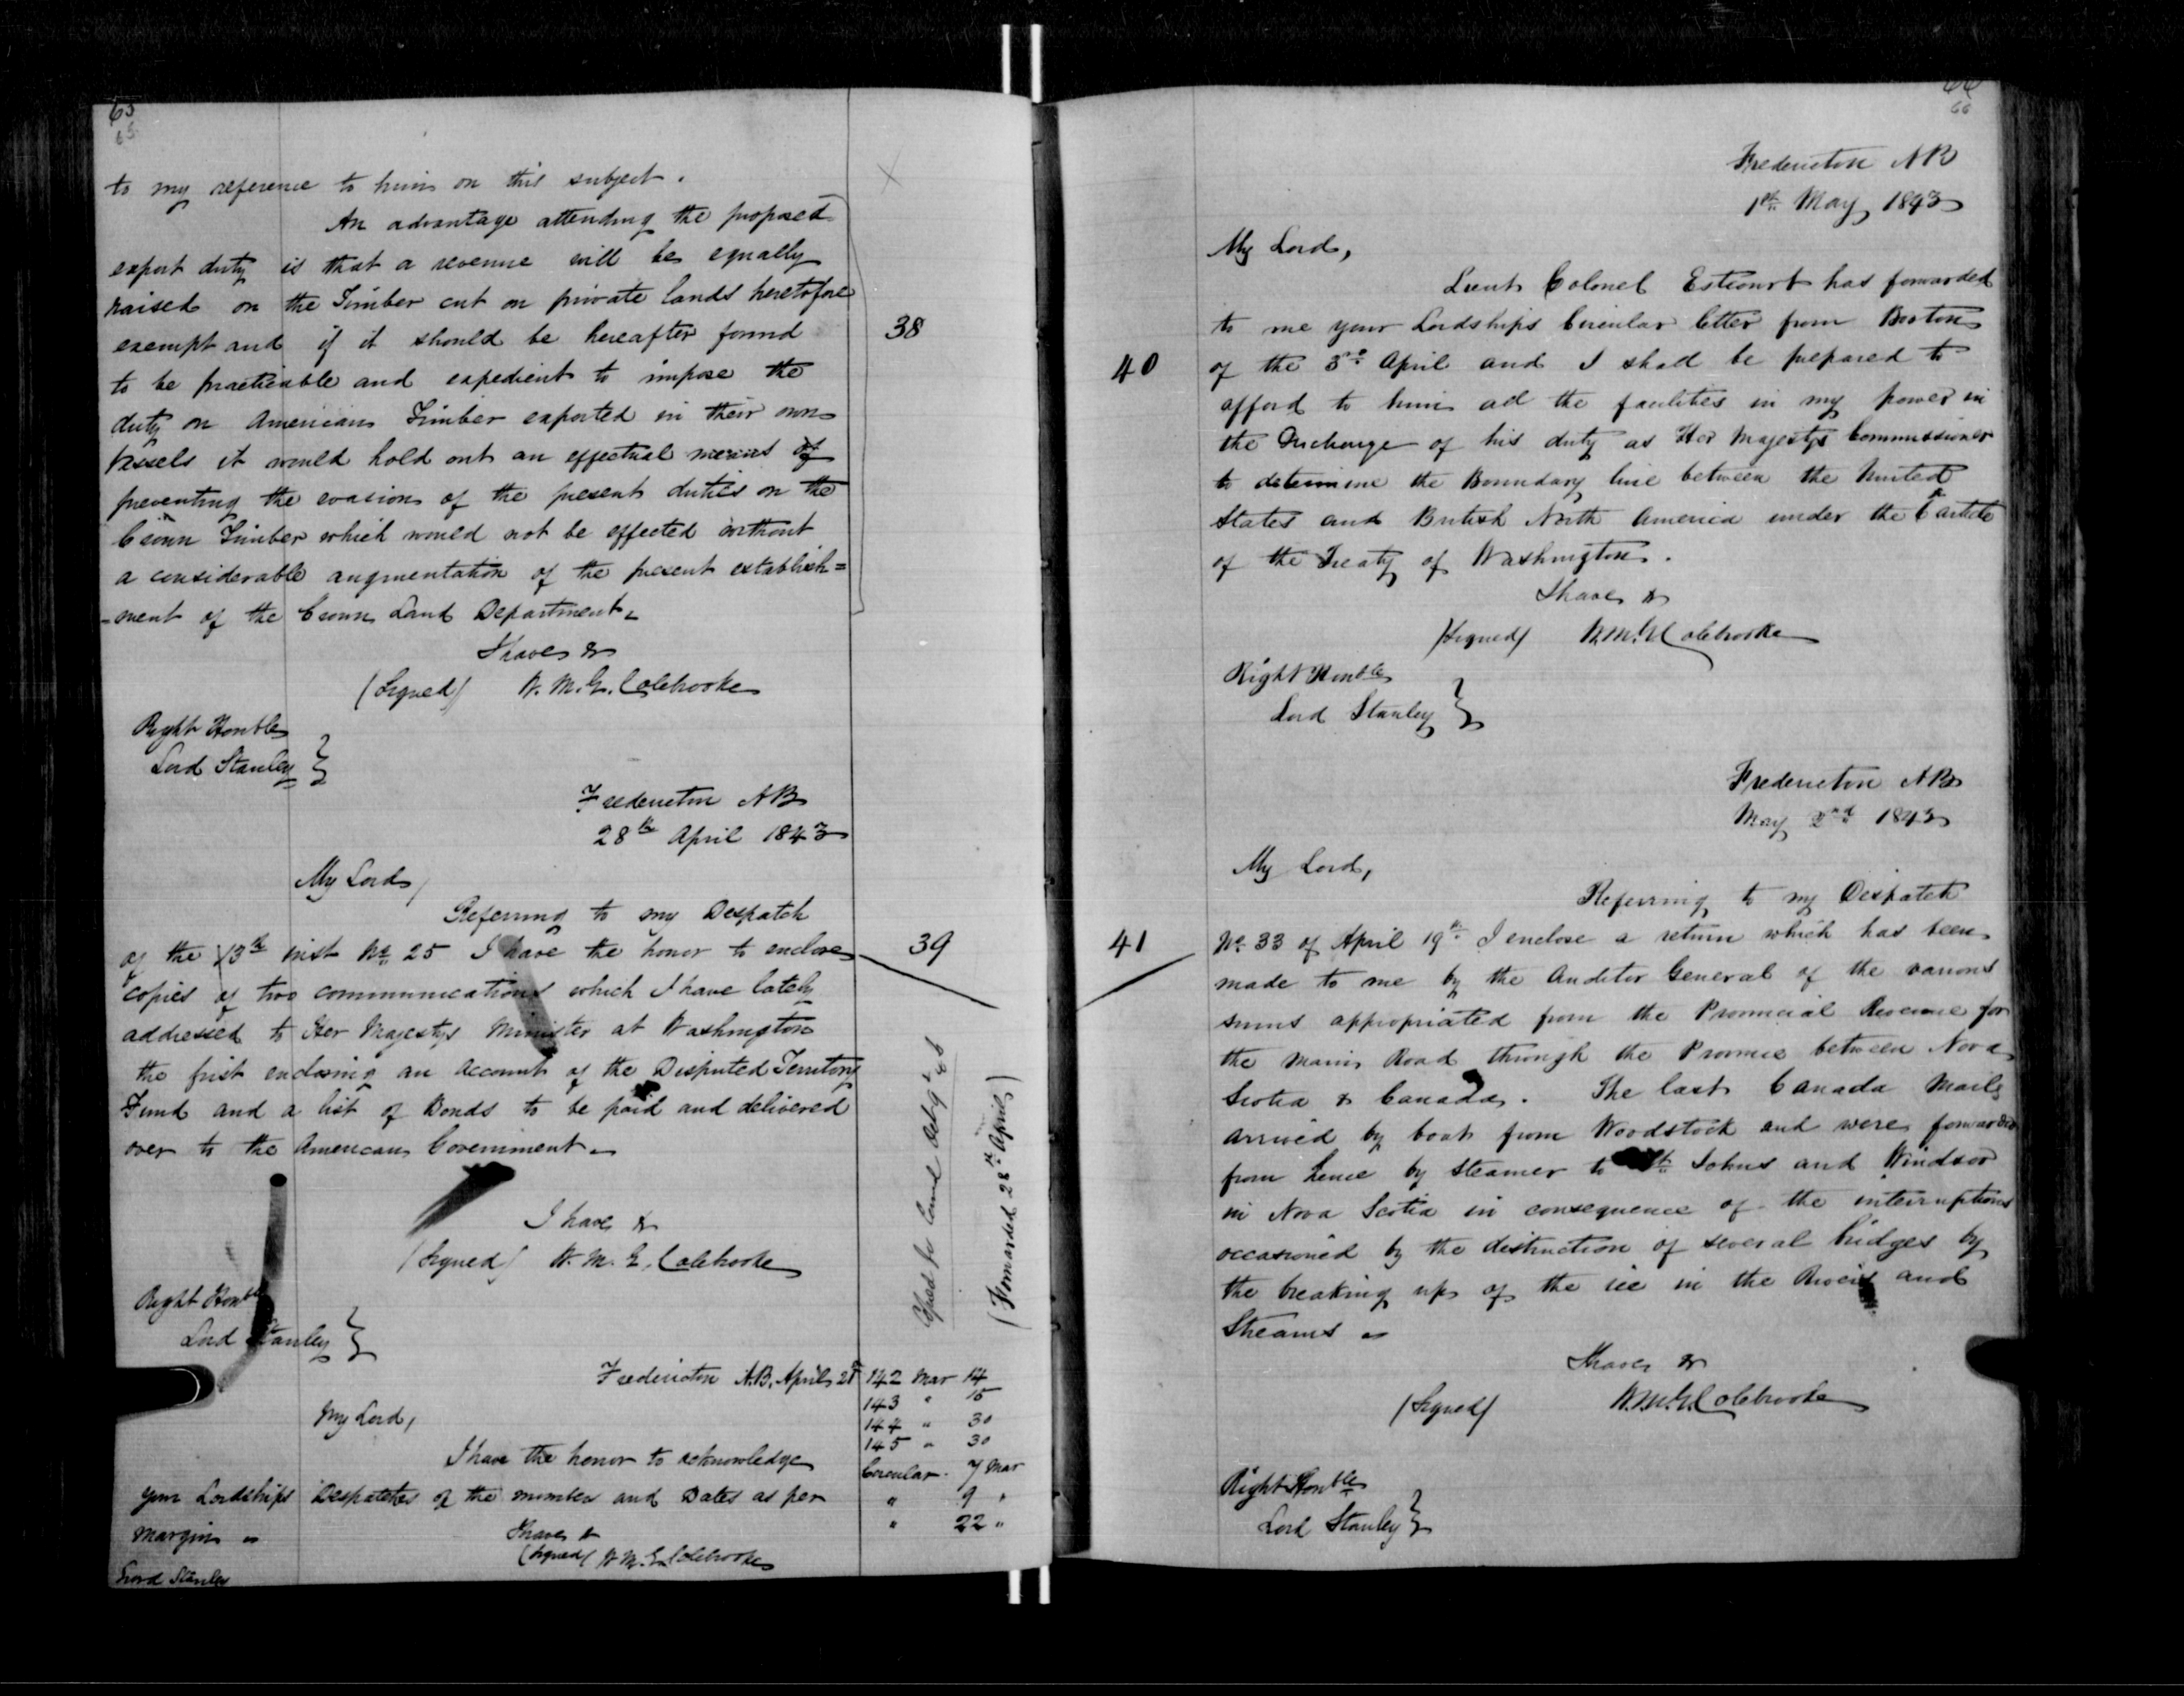 65
65
to my reference to him on this subject.
An advantage attending the proposed
export duty is that a revenue will be equally
raised on the Timber cut on private lands heretofore
exempt and if it should be hereafter found
38
to be practicable and expedient to impose the
duty on American Timber exported in their own
vessels it would hold out an effectual means of
preventing the evasion of the present duties on the
Crown Timber which would not be effected without
a considerable augmentation of the present establish=
=ment of the Crown Land Department.
I have &
(Signed) W. M. G. Colebrooke
Right Honble
Lord Stanley }
Fredericton NB
28th April 1843
My Lord,
Referring to my Despatch
of the 13th inst No 25 I have the honor to enclose
39
copies of two communications which I have lately
addressed to Her Majestys Minister at Washington
the first enclosing an Account of the Disputed Territory
Fund and a list of Bonds to be paid and delivered
over to the American Government.
(Forwarded 28th April)
I have &
(Signed) W. M. G. Colebrooke
Right Honble
Lord Stanley }
Fredericton N.B. April 28
My Lord,
I have the honor to acknowledge
your Lordships Despatches of the number and Dates as per
margin
I have &
(Signed) W M. G Colebrooke
Lord Stanley
142 Mar 14
143 " 15
144 " 30
145 " 30
Circular. 7 Mar
" 9 "
" 22 "
66
66
Fredericton NB
1st May 1843
My Lord,
Lieut Colonel Estcourt has forwarded
to me your Lordships Circular letter from Boston
40
of the 3rd April and I shall be prepared to
afford to him all the facilities in my power in
the Discharge of his duty as Her Majestys Commissioner
to determine the Boundary line between the United
States and British North America under the 6th article
of the Treaty of Washington.
I have &
(Signed) W.M.G. Colebrooke
Right Honble
Lord Stanley }
Fredericton NB
May 2nd 1843
My Lord,
Referring to my Despatch
41
No 33 of April 19th I enclose a return which has been
made to me by the Auditor General of the various
sums appropriated from the Provincial Revenue for
the Main Road through the Province between Nova
Scotia & Canada. The last Canada Mails
arrived by boat from Woodstock and were forwarded
from hence by Steamer to St Johns and Windsor
in Nova Scotia in consequence of the interruptions
occasioned by the distruction of several bridges by
the breaking up of the ice in the Rivers and
Streams
I have &
(Signed) W.M.G. Colebrooke
Right Honble
Lord Stanley }